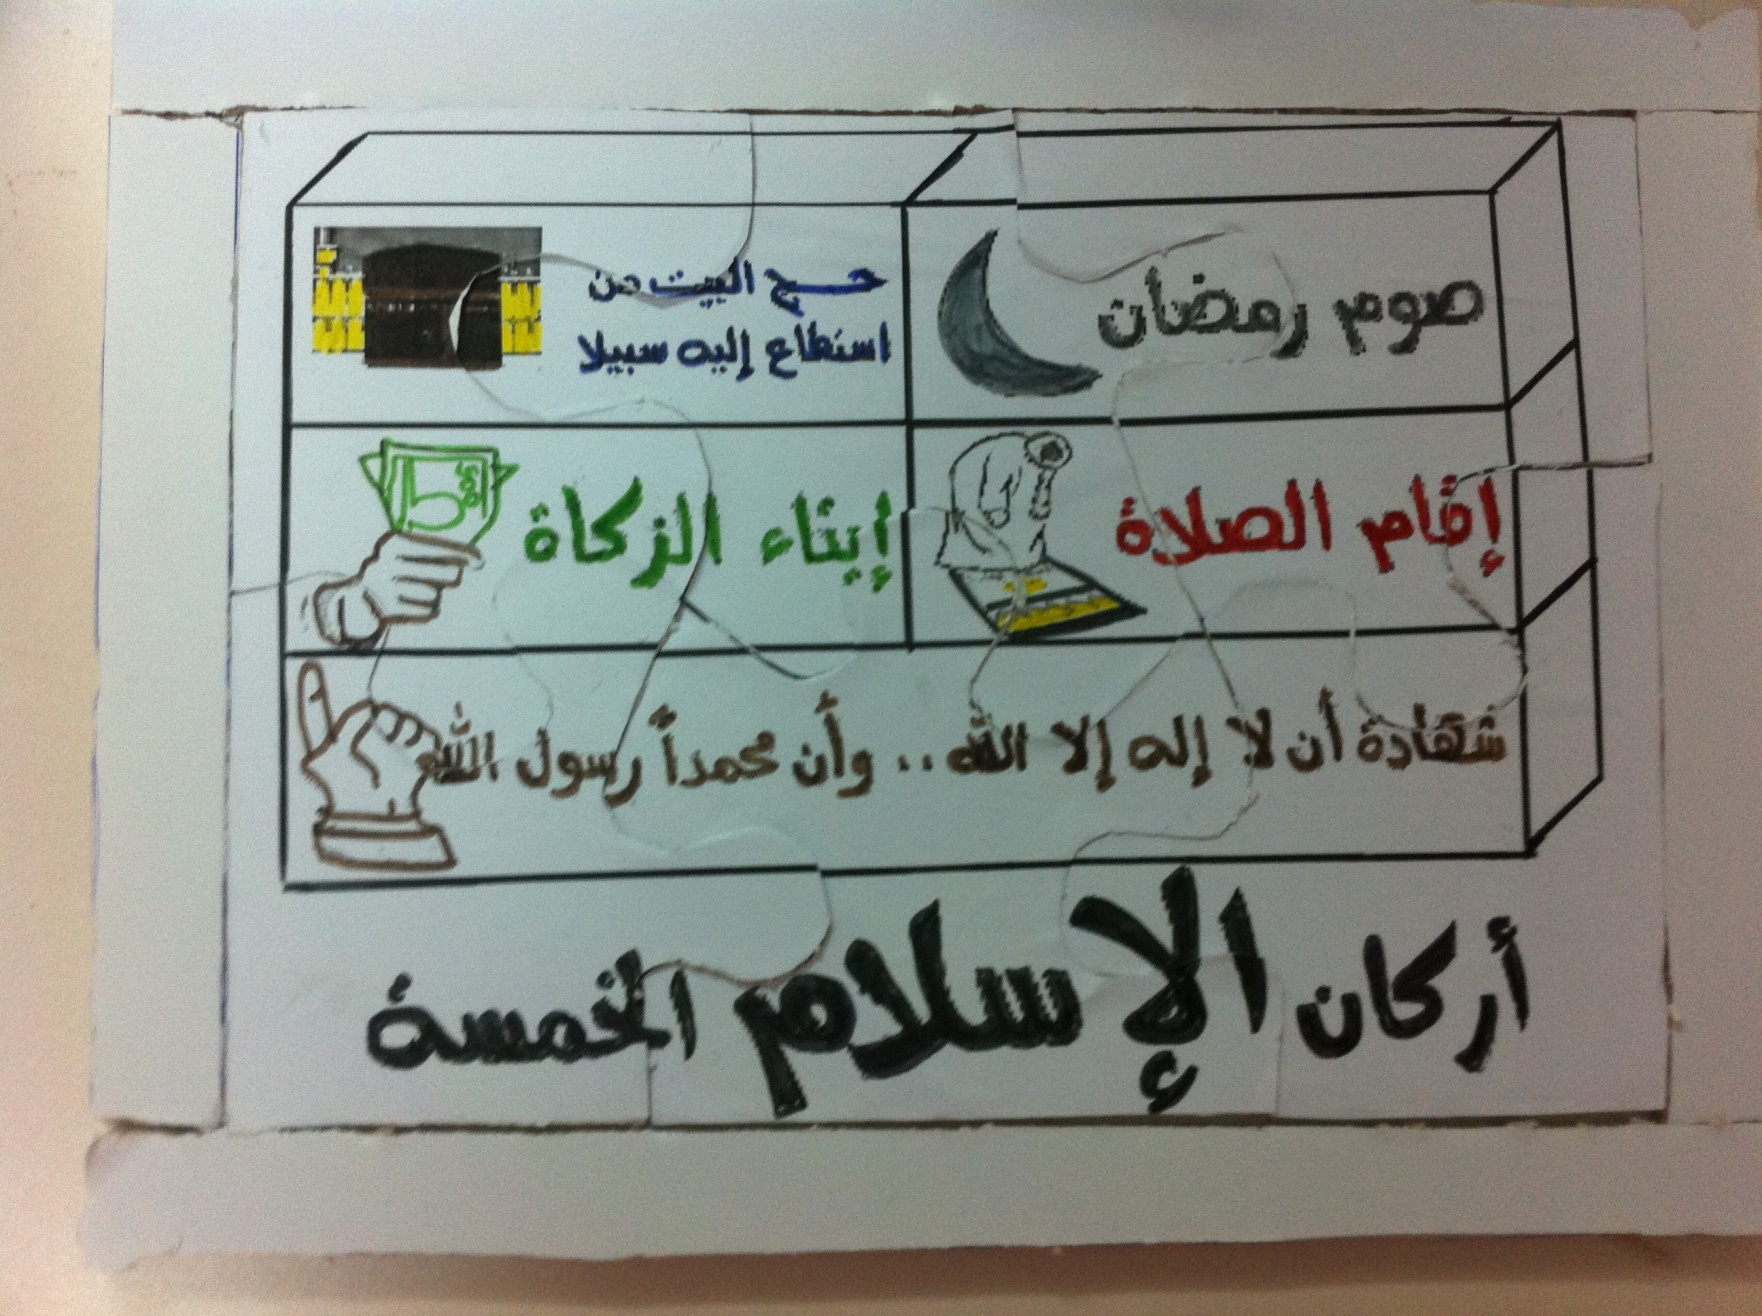 صوم رمضان
حج البيت من
استطاع إليه سبيلا
إقام الصلاة
إيتاء الزكاة
شهادة أن لا إله إلا الله .. وأن محمداً رسول الله
أركان الإسلام الخمسة